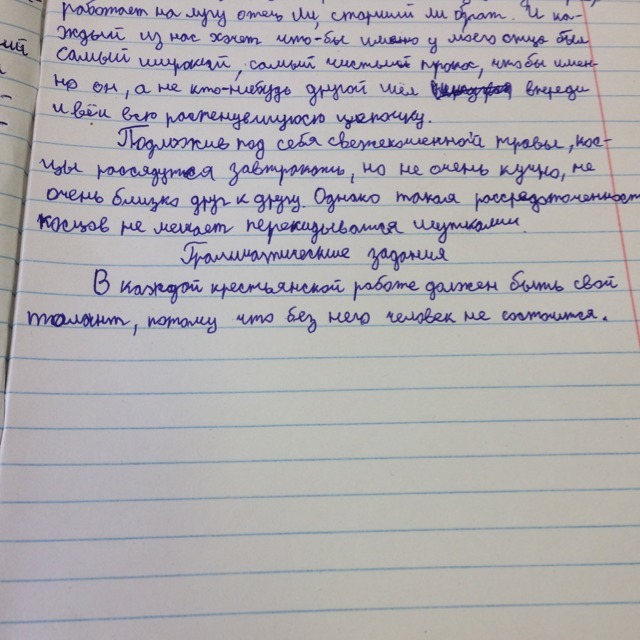 работает на лугу отец ли, старший ли брат. И ка-
ждый из нас хочет что-бы имено у моего отца был
самый широкий, самый чистый прокос, чтобы имен-
но он, а не кто-нибудь другой шёл впереди
и вёл всю растенувшуюся цепочку.
Подложив под себя свежекошенной травы, кос-
цы рассядутся завтракать, но не очень кучно, не
очень близко друг к другу. Однако такая рассредоточенность
косцов не мешает перекидыватся шутками.
Грамматические задания
В каждой крестьянской работе должен быть свой
талант, потому что без него человек не состоится.